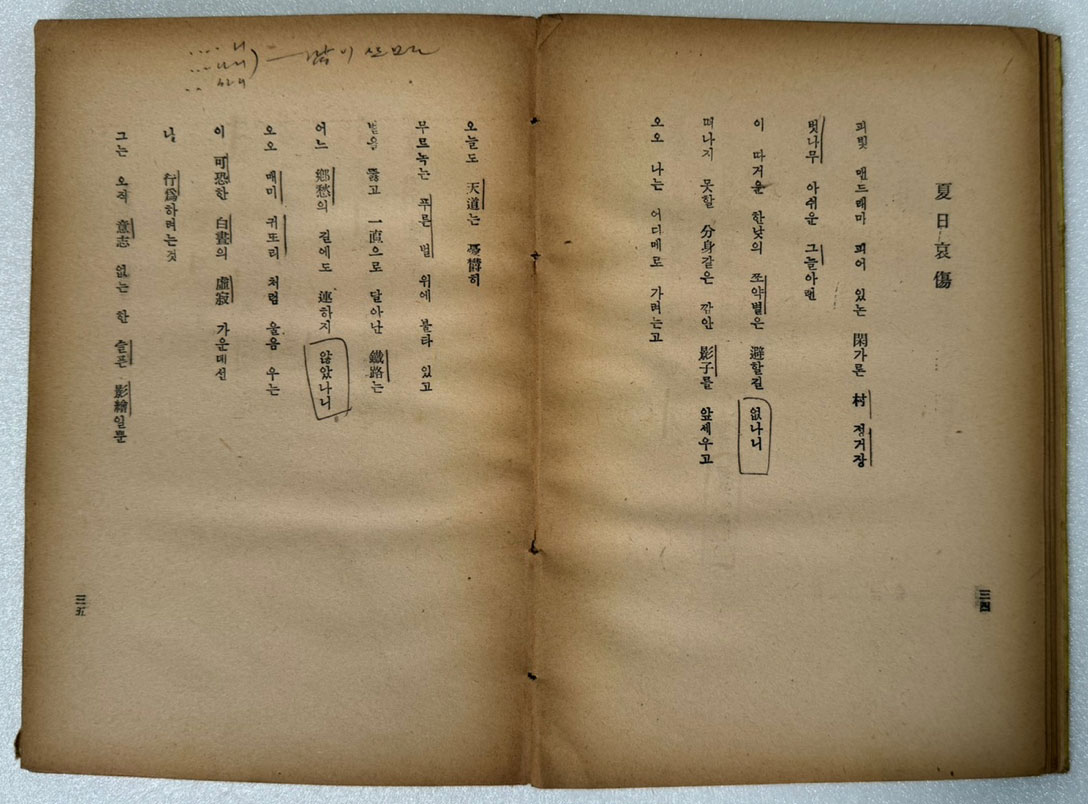 夏日哀傷
피빛 맨드래미 피어 있는 閑가론 村 정거장
벗나무 아쉬운 그늘아랜
이 따거운 한낮의 쪼약볕은 避할길 없나니
떠나지 못할 分身같은 깜안 影子를 앞세우고
오오 나는 어디메로 가려는고
三四
.... 니
... 나니
.. 하니
많이
오늘도 天道는
무르녹는 푸른 벌 위에 불타 있고
벌을 뚫고 一直으로 달아난 鐵路는
어느 鄕愁의 길에도 連하지 않았나니
오오 매미 귀또리 처럼 울음 우는
이 可恐한 白晝의 虛寂 가운데선
行爲하려는것
그는 오직 意志 없는 한 슬픈 影繪일뿐
三五